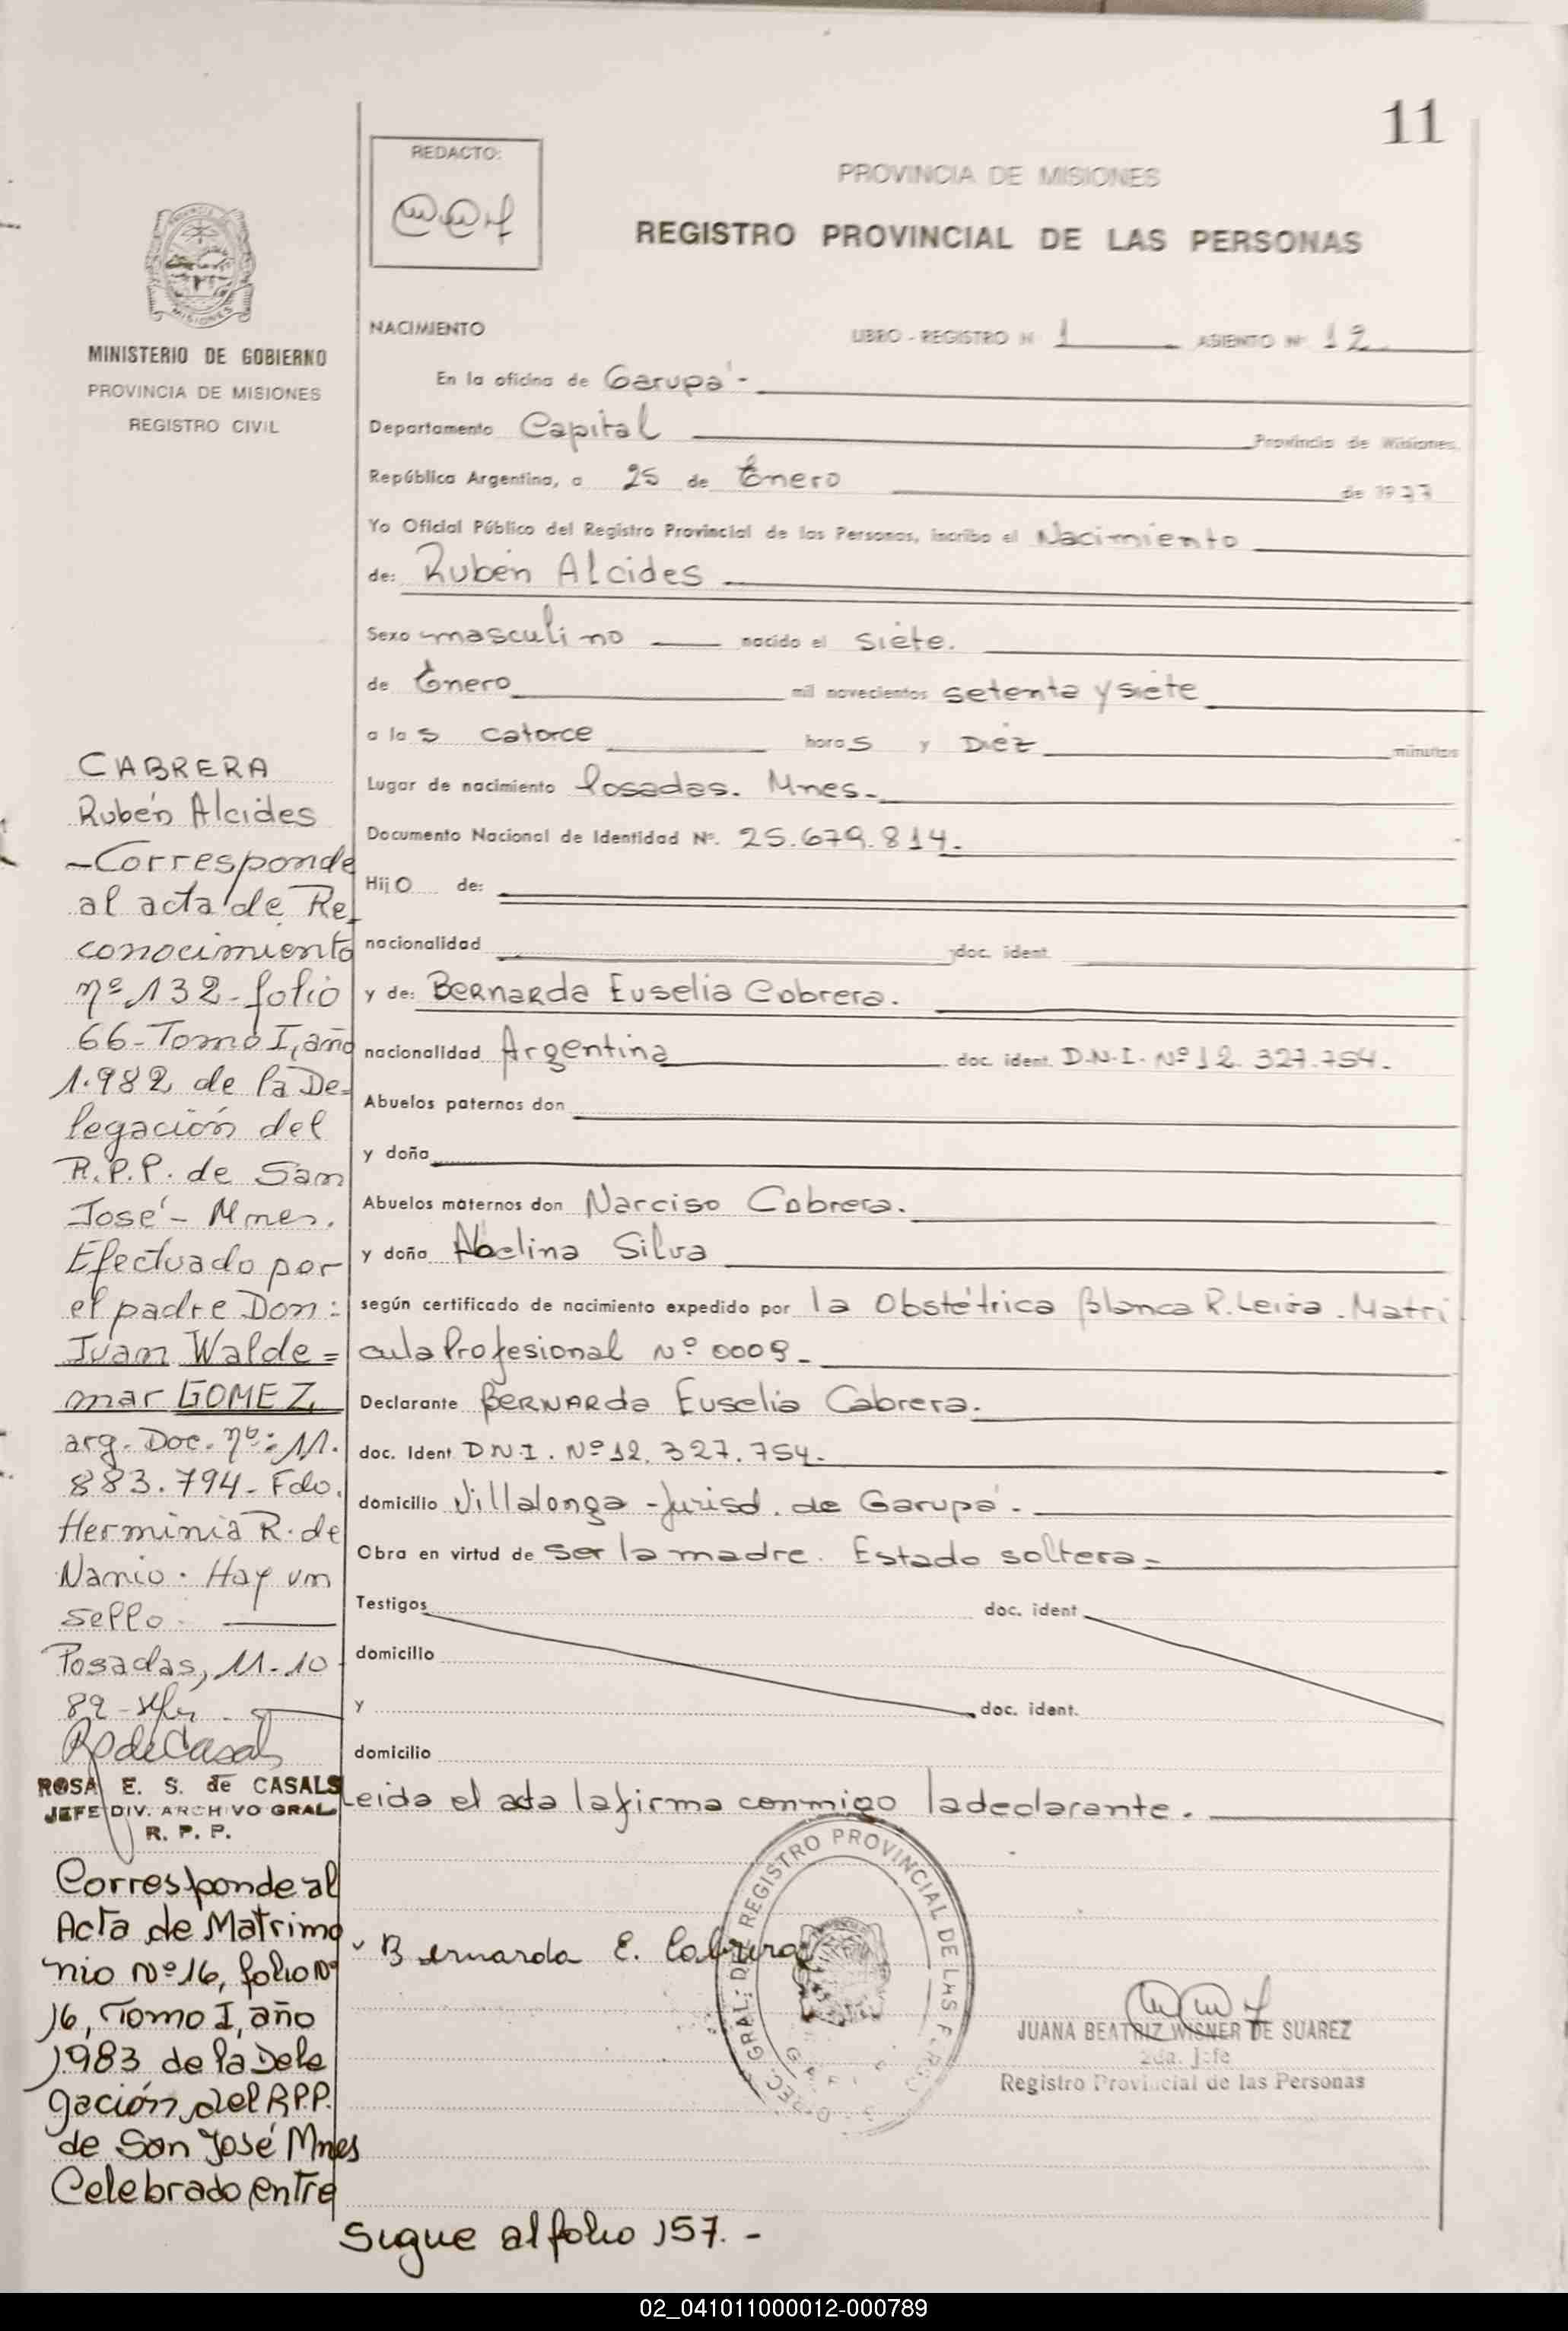 11
REDACTO:
PROVINCIA DE MISIONES
REGISTRO PROVINCIAL DE LAS PERSONAS
MISIONES
MINISTERIO DE GOBIERNO
PROVINCIA DE MISIONES
REGISTRO CIVIL
NACIMIENTO LIBRO - REGISTRO N 1 ASIENTO Nº 12.
En la oficina de Garupá -
Departamento Capital Provincia de Misiones,
República Argentina, a 25 de Enero de 1977
Yo Oficial Público del Registro Provincial de las Personas, incribo el Nacimiento
de: Rubén Alcides
Sexo masculino nacido el siete.
de Enero mil novecientos setenta y siete
a las catorce horas y Diez minutos
Lugar de nacimiento Posadas. Mnes.-
Documento Nacional de Identidad Nº. 25.679.814.
Hijo de:
nacionalidad doc. ident.
y de: Bernarda Euselia Cabrera.
nacionalidad Argentina doc. ident. D.N.I. Nº 12.327.754.
Abuelos paternos don
y doña
Abuelos maternos don Narciso Cabrera.
y doña Abelina Silva
según certificado de nacimiento expedido por la Obstétrica Blanca R. Leiva. Matri
cula Profesional Nº 0009.-
Declarante Bernarda Euselia Cabrera.
doc. Ident D.N.I. Nº 12.327.754.
domicilio Villalonga - Jurisd. de Garupá.
Obra en virtud de ser la madre. Estado soltera.-
Testigos doc. ident
domicilio
y doc. ident.
domicilio
Leida el acta la firma conmigo la declarante.
Bernarda E. Cabrera
DIREC. GRAL. DEL REGISTRO PROVINCIAL DE LAS PERSO
JUANA BEATRIZ WISNER DE SUAREZ
2da. Jefe
Registro Provincial de las Personas
CABRERA
Rubén Alcides
-Corresponde
al acta de Re-
conocimiento
nº 132 - folio
66 - Tomo I, año
1.982 de la De=
legación del
R.P.P. de San
José - Mnes.
Efectuado por
el padre Don:
Juan Walde=
mar GOMEZ,
arg. Doc. nº: 11.
883.794 - Fdo.
Herminia R. de
Namio. Hay un
sello.
Posadas, 11-10
82 -
R de Casals
ROSA E. S. de CASALS
JEFE DIV. ARCHIVO GRAL
R. P. P.
Corresponde al
Acta de Matrimo
nio Nº 16, folio Nº
16, Tomo I, año
1983 de la Dele
gación del R.P.P.
de San José Mnes
Celebrado entre
Sigue al folio 157. -
02_041011000012-000789